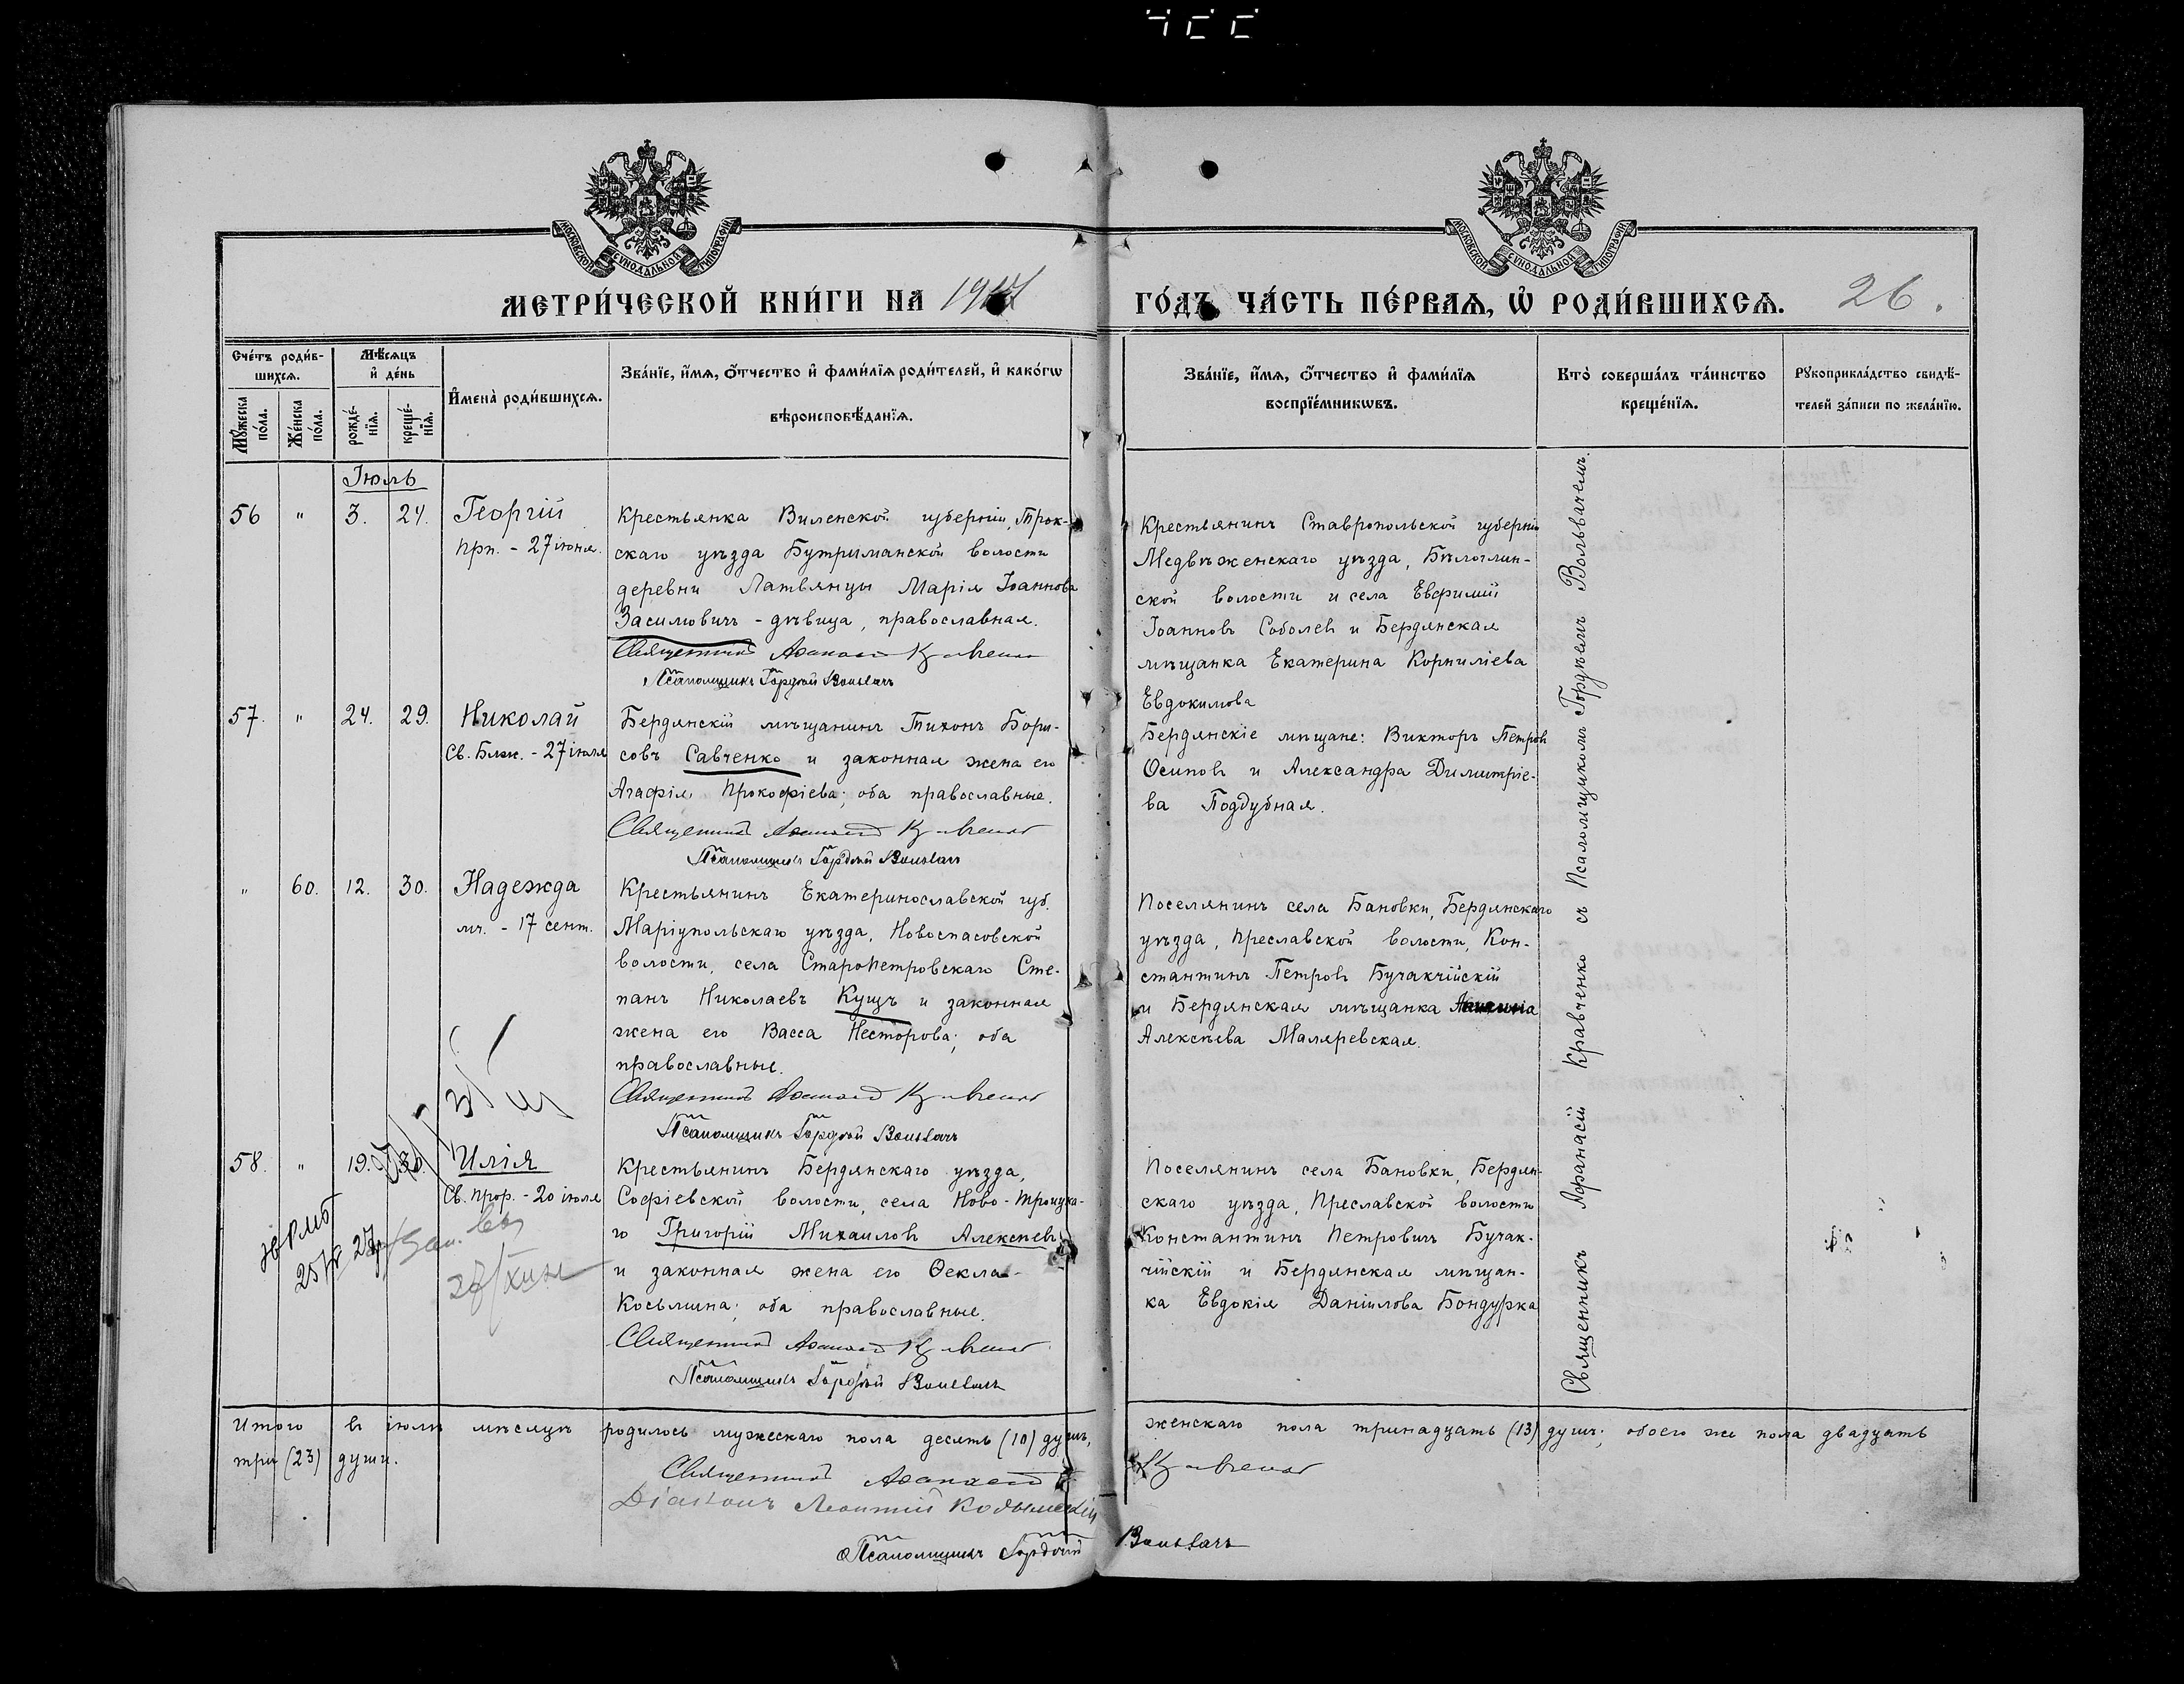 МЕТРИ́ЧЕСКОЙ КНИ́ГИ НА 1917
ГО́ДЪ, ЧА́СТЬ ПЕ́РВАѦ, Ѡ РОДИ́ВШИХСѦ. 26.
МОСКОВСКОЙ СѴНОДАЛЬНОЙ ТИПОГРАФІИ
МОСКОВСКОЙ СѴНОДАЛЬНОЙ ТИПОГРАФІИ
Сче́тъ роди́в-
шихсѧ.
Мꙋ́жеска
по́ла.
Же́нска
по́ла.
Мѣ́сѧцъ
и҆ де́нь
рожде́-
нїѧ.
креще́-
нїѧ.
И҆мена̀ роди́вшихсѧ.
Зва́нїе, и҆́мѧ, ѻ҆́тчество и҆ фами́лїѧ роди́телей, и҆ како́гѡ
вѣроисповѣ́данїѧ.
Зва́нїе, и҆́мѧ, ѻ҆́тчество и҆ фами́лїѧ
воспрїе́мникѡвъ.
Кто̀ соверша́лъ та́инство
креще́нїѧ.
Рꙋкоприкла́дство свидѣ́-
телей за́писи по жела́нїю.
Іюль
56 " 3. 24. Георгій
прп. - 27 іюня.
Крестьянка Виленской губерніи, Трок-
скаго уѣзда Бутриманской волости
деревни Латвянцы Марія Іоаннова
Засимовичъ - дѣвица, православная.
Священникъ Афанасій Кравченко
Псаломщикъ Гордѣй Вольвачъ
Крестьянинъ Ставропольской губерніи
Медвѣженскаго уѣзда, Бѣлоглин-
ской волости и села Евфимій
Іоанновъ Соболев и Бердянская
мѣщанка Екатерина Корниліева
Евдокимова
57. " 24. 29. Николай
Св. Блж. - 27 іюля
Бердянскій мѣщанинъ Тихонъ Бори-
совъ Савченко и законная жена его
Агафія Прокофіева; оба православные.
Священникъ Афанасій Кравченко
Псаломщикъ Гордѣй Вольвачъ
Бердянскіе мѣщане: Викторъ Петров
Осиповъ и Александра Димитріе-
ва Поддубная.
" 60. 12. 30. Надежда
мч. - 17 сент.
Крестьянинъ Екатеринославской губ.
Маріупольскаго уѣзда, Новоспасовской
волости, села Старопетровскаго Сте-
панъ Николаевъ Кущъ и законная
жена его Васса Несторова; оба
православные.
Священникъ Афанасій Кравченко
Псаломщикъ Гордѣй Вольвачъ
Поселянинъ села Бановки, Бердянскаго
уѣзда, Преславской волости, Кон-
стантинъ Петровъ Бучакчійскій
и Бердянская мѣщанка
Алексѣева Маляревская.
58. " 19. 30. Илія
Св. Прор. - 20 іюля
Крестьянинъ Бердянскаго уѣзда,
Софіевской волости, села Ново-Троицка-
го Григорій Михаиловъ Алексѣевъ
и законная жена его Ѳекла
Косьмина; оба православные.
Священникъ Афанасій Кравченко
Псаломщикъ Гордѣй Вольвачъ
Поселянинъ села Бановки, Бердян-
скаго уѣзда, Преславской волости
Константинъ Петровичъ Бучак-
чійскій и Бердянская мѣщан-
ка Евдокія Даніилова Бондурка
Священникъ Афанасій Кравченко съ Псаломщикомъ Гордѣемъ Вольвачемъ.
Итого въ іюлѣ мѣсяцѣ родилось мужескаго пола десять (10) душъ, женскаго пола тринадцать (13) душъ; обоего же пола двадцать
три (23) души.
Священникъ Афанасій Кравченко
Діаконъ Леонтій
Псаломщикъ Гордѣй Вольвачъ